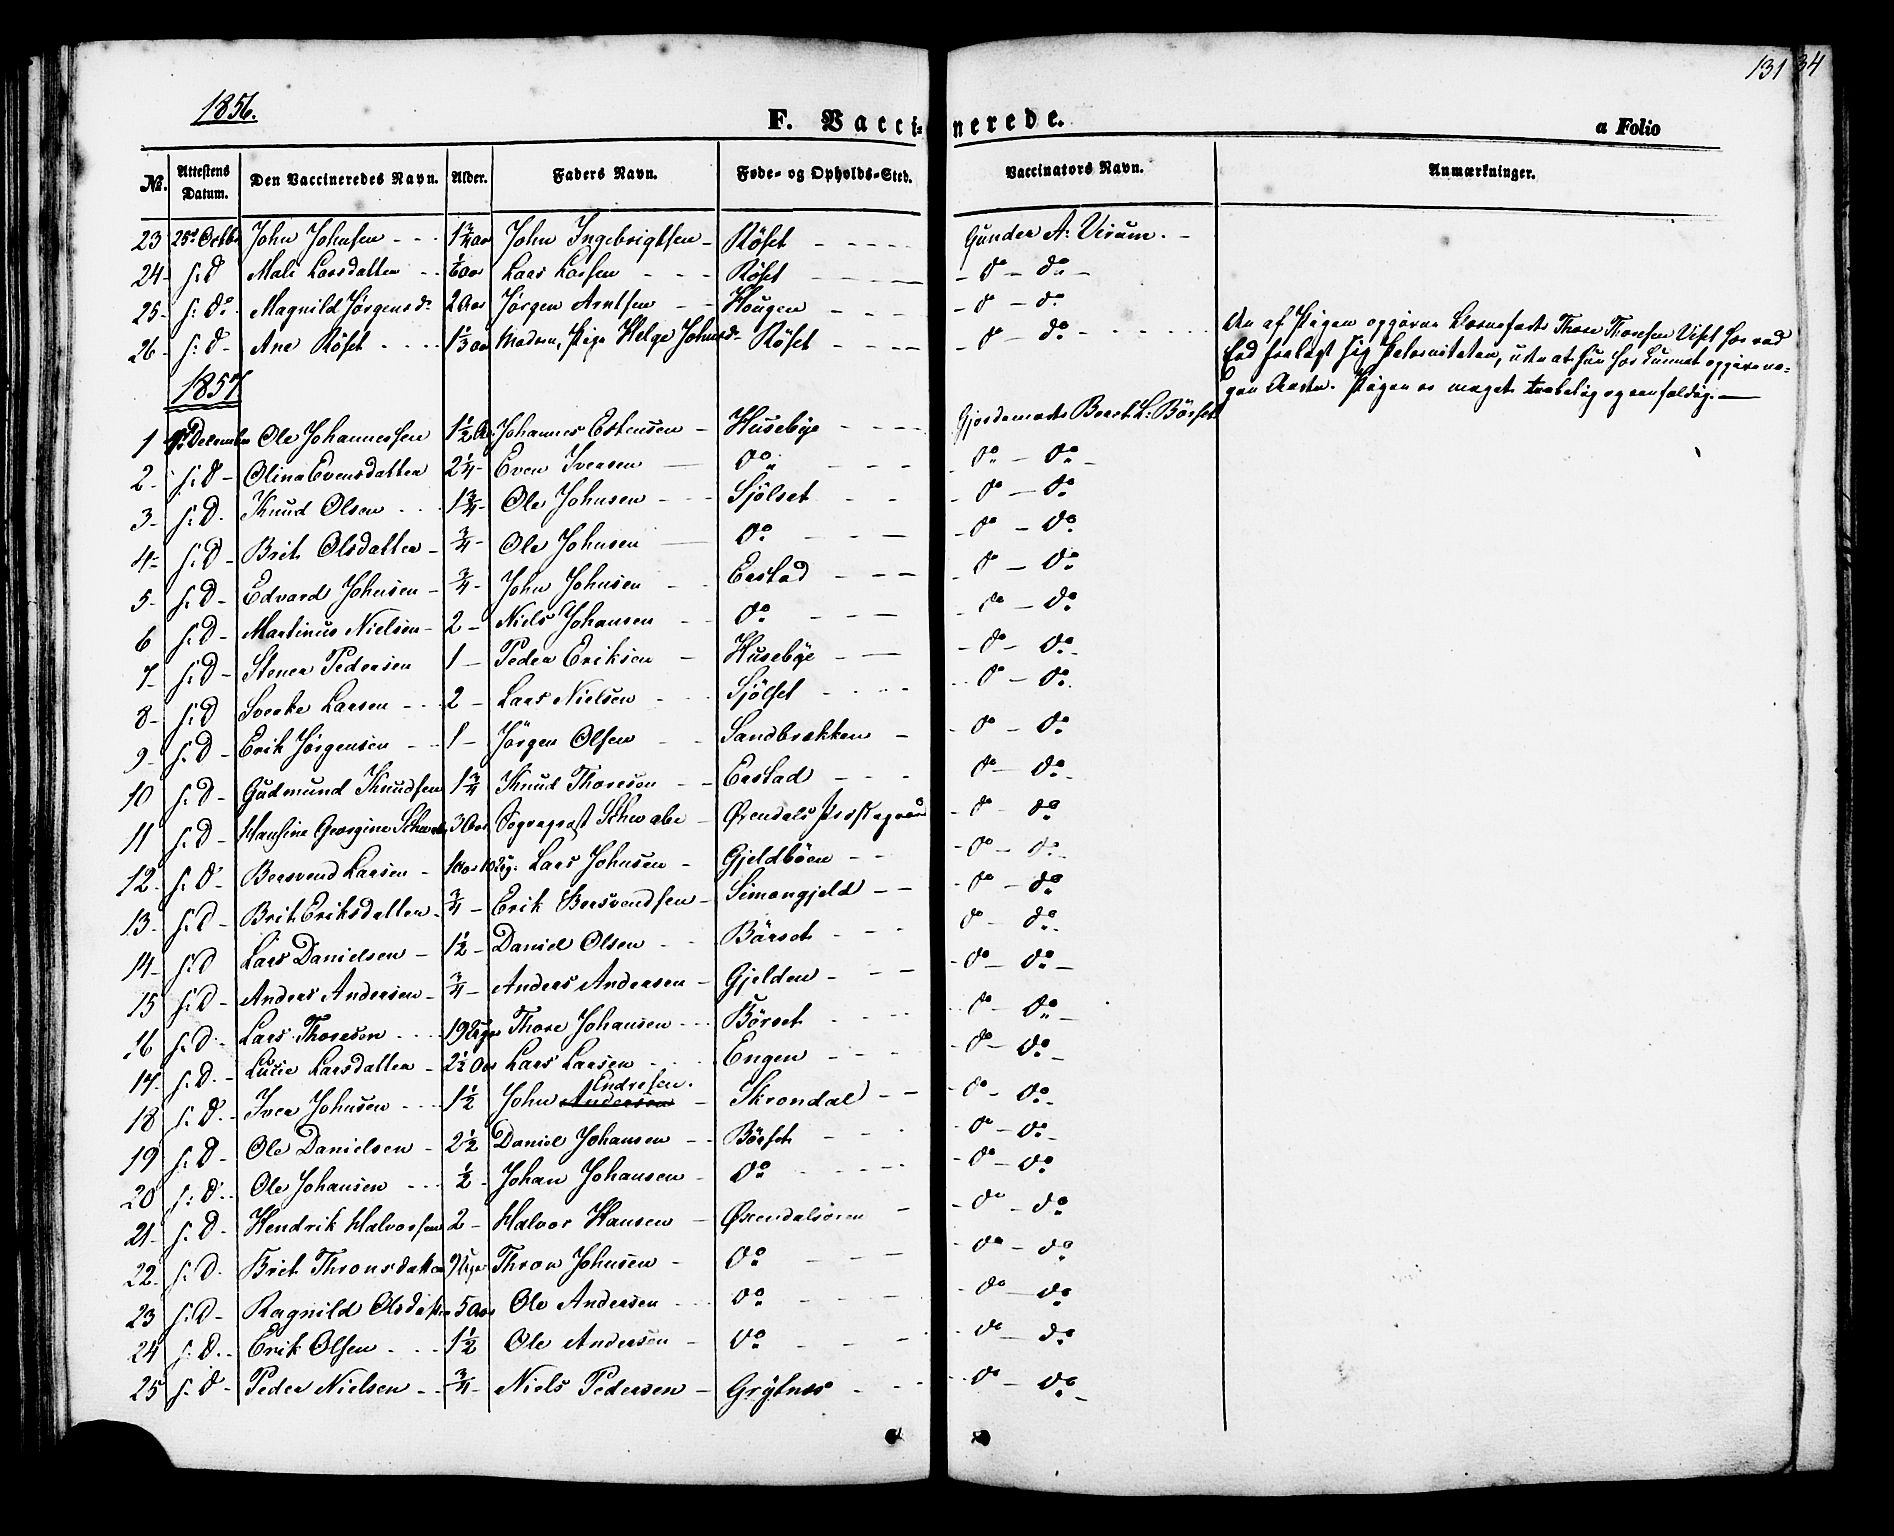 131 34
1856.
F. Vaccinerede.
a Folio
No. Attestens Datum. Den Vaccineredes Navn. Alder. Faders Navn. Føde- og Opholds-Sted. Vaccinators Navn. Anmærkninger.
23 25de Octbr John Johnsen 1 3/4 Aar John Ingebrigtsen Röset Gunder A: Virum.
24 s: D Mali Larsdatter Aar Lars Larsen Röset do do
25 s: Do Magnild Jørgensdr 2 Aar Jørgen Arntsen Hougen do do
26 s: D Ane Röset Aar Moderen, Pige Helge Johnsdr Röset do do Den af Pigen opgivne Barnefader Thore Thoresen Viset har ved
Eed fralagt sig Paterniteten, uden at hun har kunnet opgive no-
gen Anden. Pigen er meget taabelig og eenfoldig.
1857
1 December Ole Johannessen 1 1/2 Aar Johannes Estensen Husebye Gjordemoder Beret L: Börset
2 s: D Olina Evensdatter 2 1/4 Even Iversen Do Do Do
3 s: D. Knud Olsen 1 3/4 Ole Johnsen Sjölset Do Do
4 s: D Brit Olsdatter 3/4 Ole Johnsen Do Do Do
5 s: D Edvard Johnsen 3/4 John Johnsen Erstad Do Do
6 s: D Martinus Nielsen 2 Niels Johansen Do Do Do
7 s: D Stener Pedersen 1 Peder Eriksen Husebye Do Do
8 s: D Sverke Larsen 2 Lars Nielsen Sjölset Do Do
9 s: D Erik Jørgensen 1 Jörgen Olsen Sandbrekken Do Do
10 s: D Gudmund Knudsen 1 3/4 Knud Thoresen Erstad Do Do
11 s: D Hansine Georgine Schwabe 3 Aar Sogneprest Schwabe Øxendals Prestegaard Do Do
12 s: D Bersvend Larsen 1 Aar 10 Uger Lars Johnsen Gjeldböen Do Do
13 s: D Brit Eriksdatter 3/4 Erik Bersvendsen Simengjeld Do Do
14 s: D Lars Danielsen 1 1/2 Daniel Olsen Börset Do Do
15 s: D Anders Andersen 3/4 Anders Andersen Gjelden Do Do
16 s: D Lars Thoresen 19 Uger Thore Johansen Börset Do Do
17 s: D. Lucie Larsdatter 2 1/2 Aar Lars Larsen Engen Do Do
18 s: D. Iver Johnsen 1 1/2 John Andersen Endresen. Skrondal Do Do
19 s: D Ole Danielsen 2 1/2 Daniel Johansen Börset Do Do
20 s: D. Ole Johansen 1/2 Johan Johansen Do Do Do
21 s: D Hendrik Halvorsen 2 Halvor Hansen Øxendalsören Do Do
22 s: D. Brit Thronsdatter 9 Uger Thron Johnsen Do Do Do
23 s: D Ragnild Olsdatter 5 Aar Ole Andersen Do Do Do
24 s: D. Erik Olsen 1 1/2 Ole Andersen Do Do Do
25 s: D Peder Nielsen 3/4 Niels Pedersen Grytnes Do Do